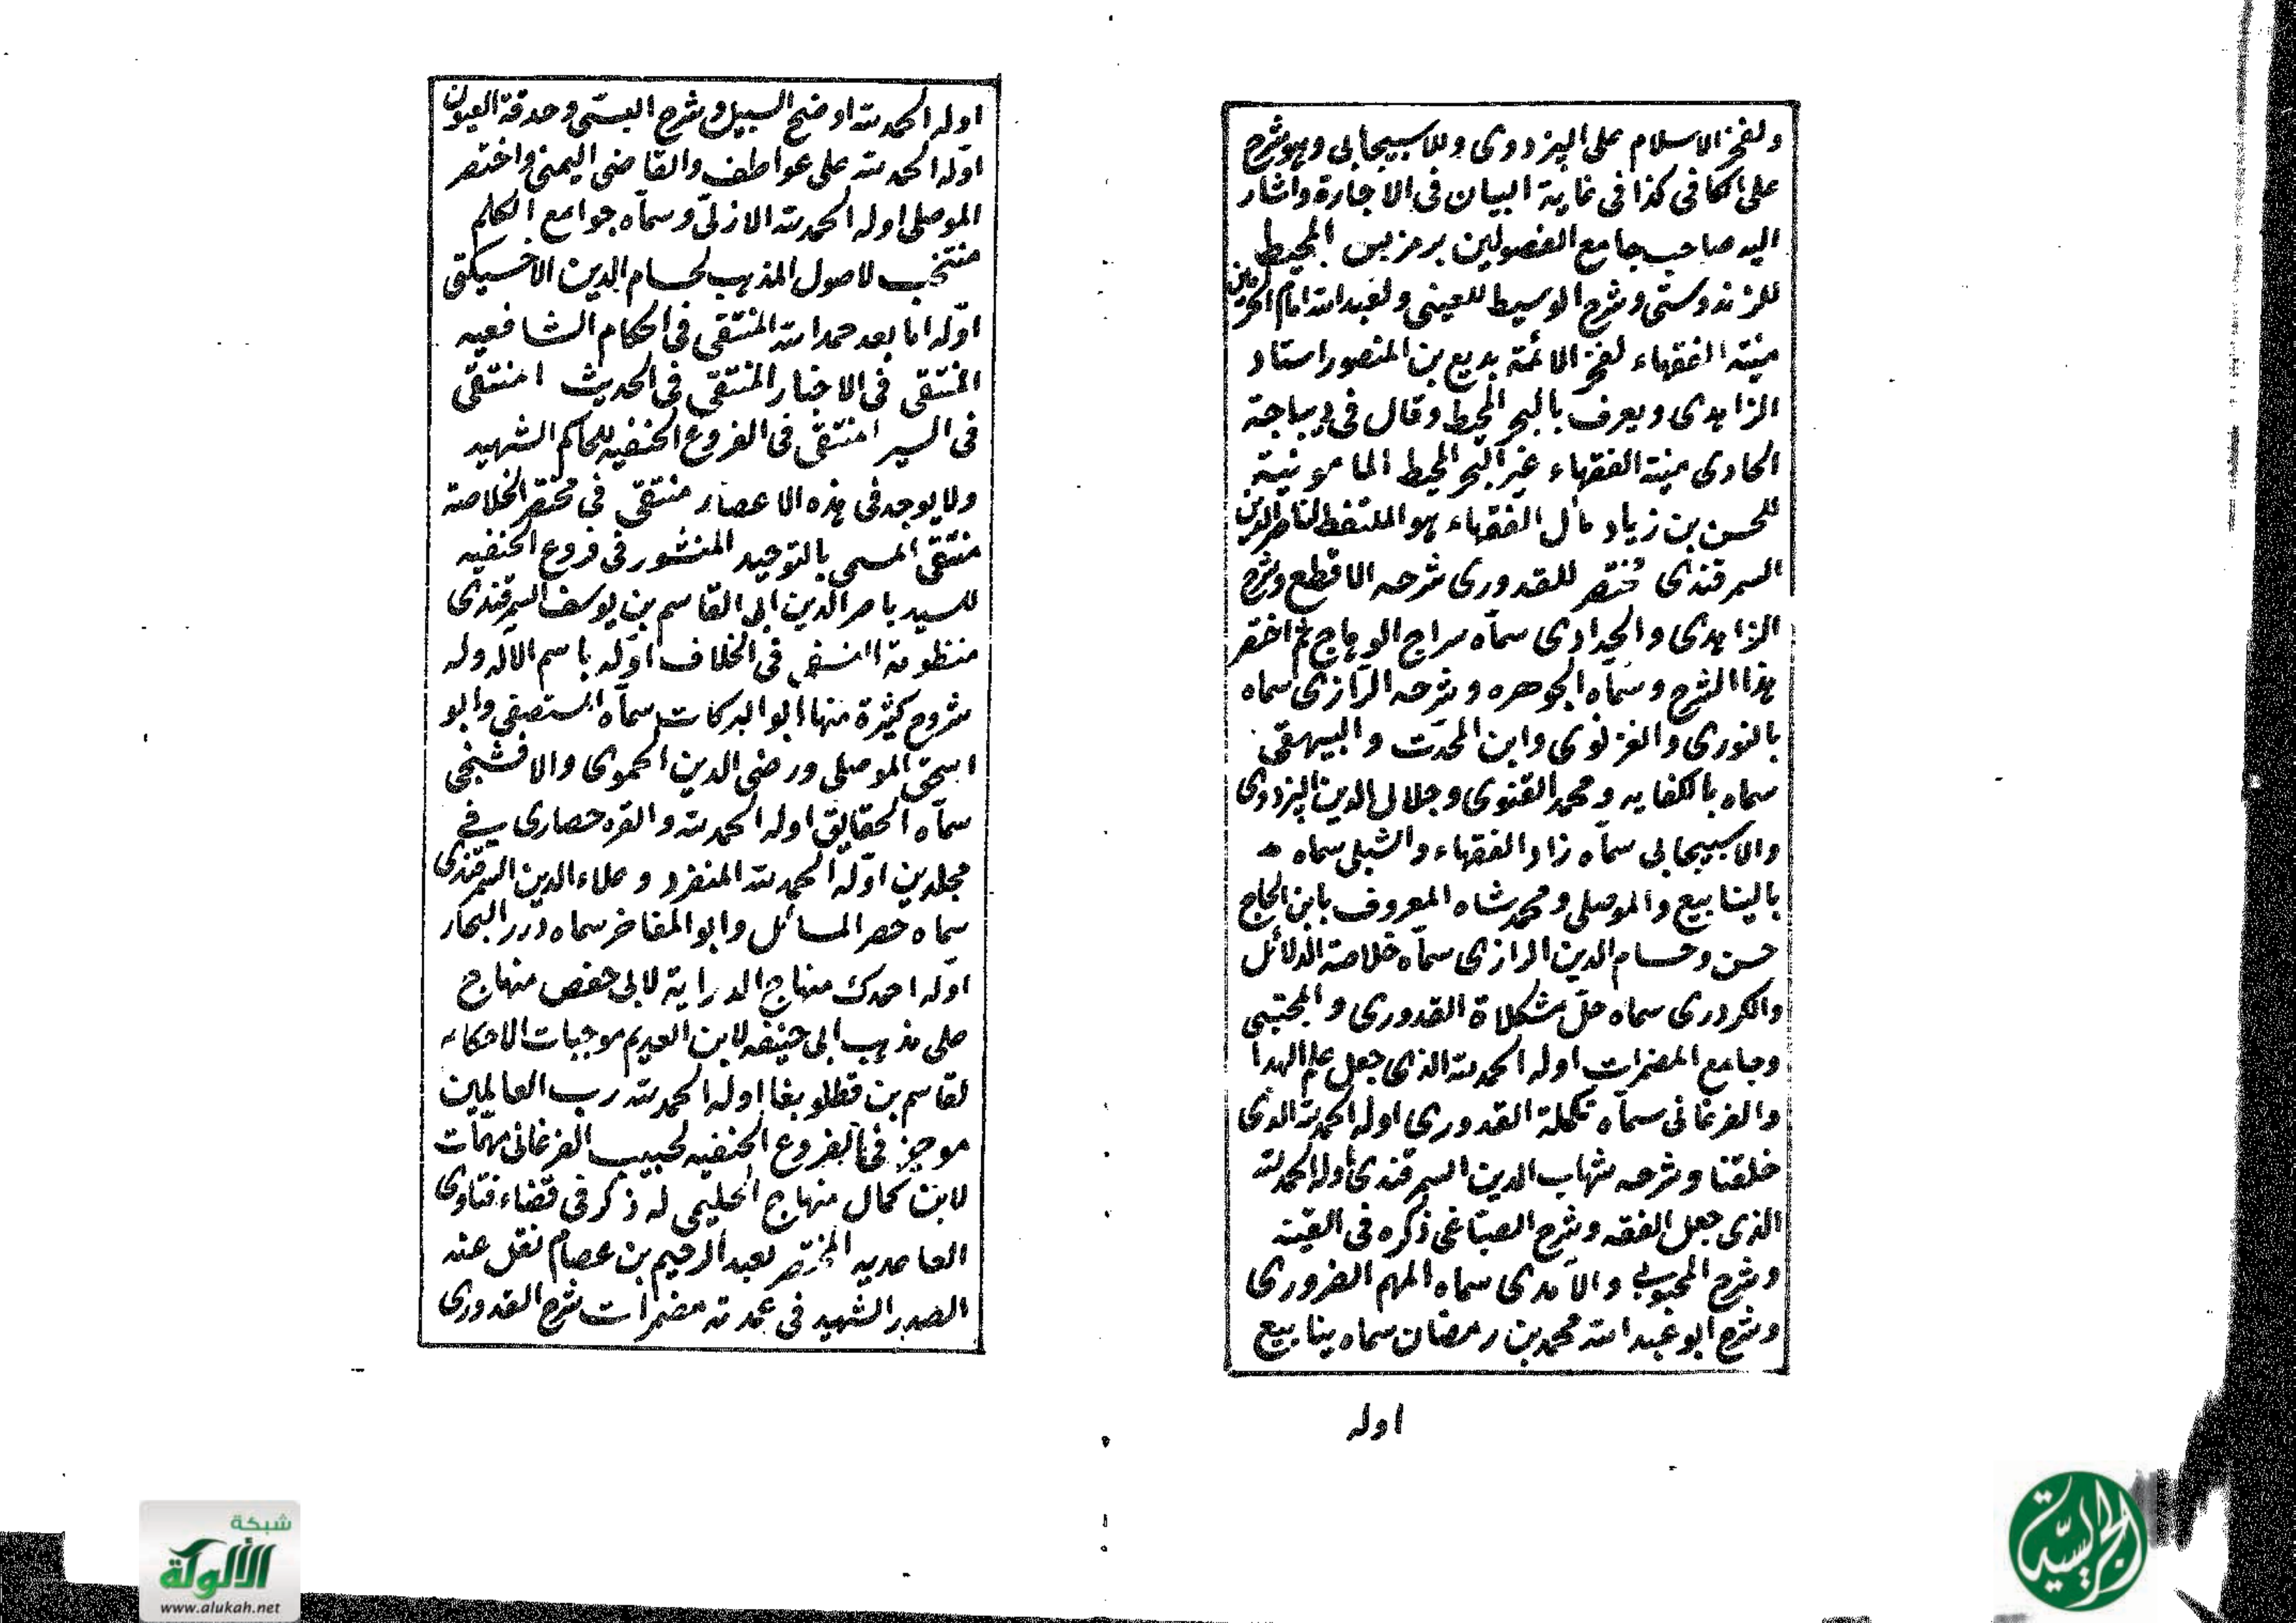 ولفخر الاسلام على البزدوى وللاسبيجابى وهو شرح
على الكافى كذا فى غاية البيان فى الاجارة واشار
اليه صاحب جامع الفصولين برمز بس المحيط
للزندوستى وشرح الوسيط للعينى ولعبد الله امام الحرمين
منية الفقهاء لفخر الائمة بديع بن المنصور استاد
الزاهدى ويعرف بالبحر المحيط وقال فى ديباجة
الحاوى منية الفقهاء غير البحر المحيط المامونية
للحسن بن زياد مأل الفقهاء هو الملتقط لناصر الدين
السمرقندى مختصر للقدورى شرحه الاقطع وشرح
الزاهدى والحدادى سماه سراج الوهاج ثم اختصر
هذا الشرح وسماه الجوهره وشرحه الرازى سماه
بالنورى والغزنوى وابن المحدث والبيهقى
سماه بالكفايه ومحمد القنوى وجلال الدين البزدوى
والاسبيجابى سماه زاد الفقهاء والشبلى سماه
بالينابيع والموصلى ومحمد شاه المعروف بابن الحاج
حسن وحسام الدين الرازى سماه خلاصة الدلائل
والكردرى سماه حل مشكلاة القدورى والمجتبى
وجامع المضمرات اوله الحمد لله الذى جعل علم الهدا
والفرغانى سماه تكملة القدورى اوله الحمد لله الذى
خلقنا وشرحه شهاب الدين السمرقندى اوله الحمد لله
الذى جعل الفقه وشرح الصباغى ذكره فى القنية
وشرح المحبوبى والآمدى سماه المهم الضرورى
وشرح ابو عبد الله محمد بن رمضان سماه ينابيع
اوله
اوله الحمد لله اوضح السبيل وشرح البستى وحدقة العيون
اوله الحمد لله على عواطف والقاضى اليمنى واختصر
الموصلى اوله الحمد لله الازلى وسماه جوامع الكلم
منتخب لاصول المذهب لحسام الدين الاخسيكتى
اوله اما بعد حمدا لله المنتقى فى احكام الشافعيه
المنتقى فى الاخبار المنتقى فى الحديث المنتقى
فى السير المنتقى فى الفروع الحنفيه للحاكم الشهيد
ولا يوجد فى هذه الاعصار منتقى فى مختصر الخلاصة
منتقى المسمى بالتوحيد المنشور فى فروع الحنفيه
للسيد ناصر الدين ابى القاسم بن يوسف السمرقندى
منظومة النسفى فى الخلاف اوله باسم الاله وله
شروح كثيرة منها ابو البركات سماه المستصفى وابو
اسحق الموصلى ورضى الدين الحموى والافشنجى
سماه الحقايق اوله الحمد لله والقره حصارى فى
مجلدين اوله الحمد لله المنفرد وعلاء الدين السمرقندى
سماه حصر المسائل وابو المفاخر سماه درر البحار
اوله احمدك منهاج الدراية لابى حفص منهاج
على مذهب ابى حنيفه لابن العديم موجبات الاحكام
لقاسم بن قطلوبغا اوله الحمد لله رب العالمين
موجز فى الفروع الحنفيه لحبيب الفرغانى مهمات
لابن كمال منهاج الحليمى له ذكر فى قضاء فتاوى
العامديه المختصر لعبد الرحيم بن عصام نقل عنه
الصدر الشهيد فى عمدته مضمرات شرح القدورى
شبكة
الألوكة
www.alukah.net